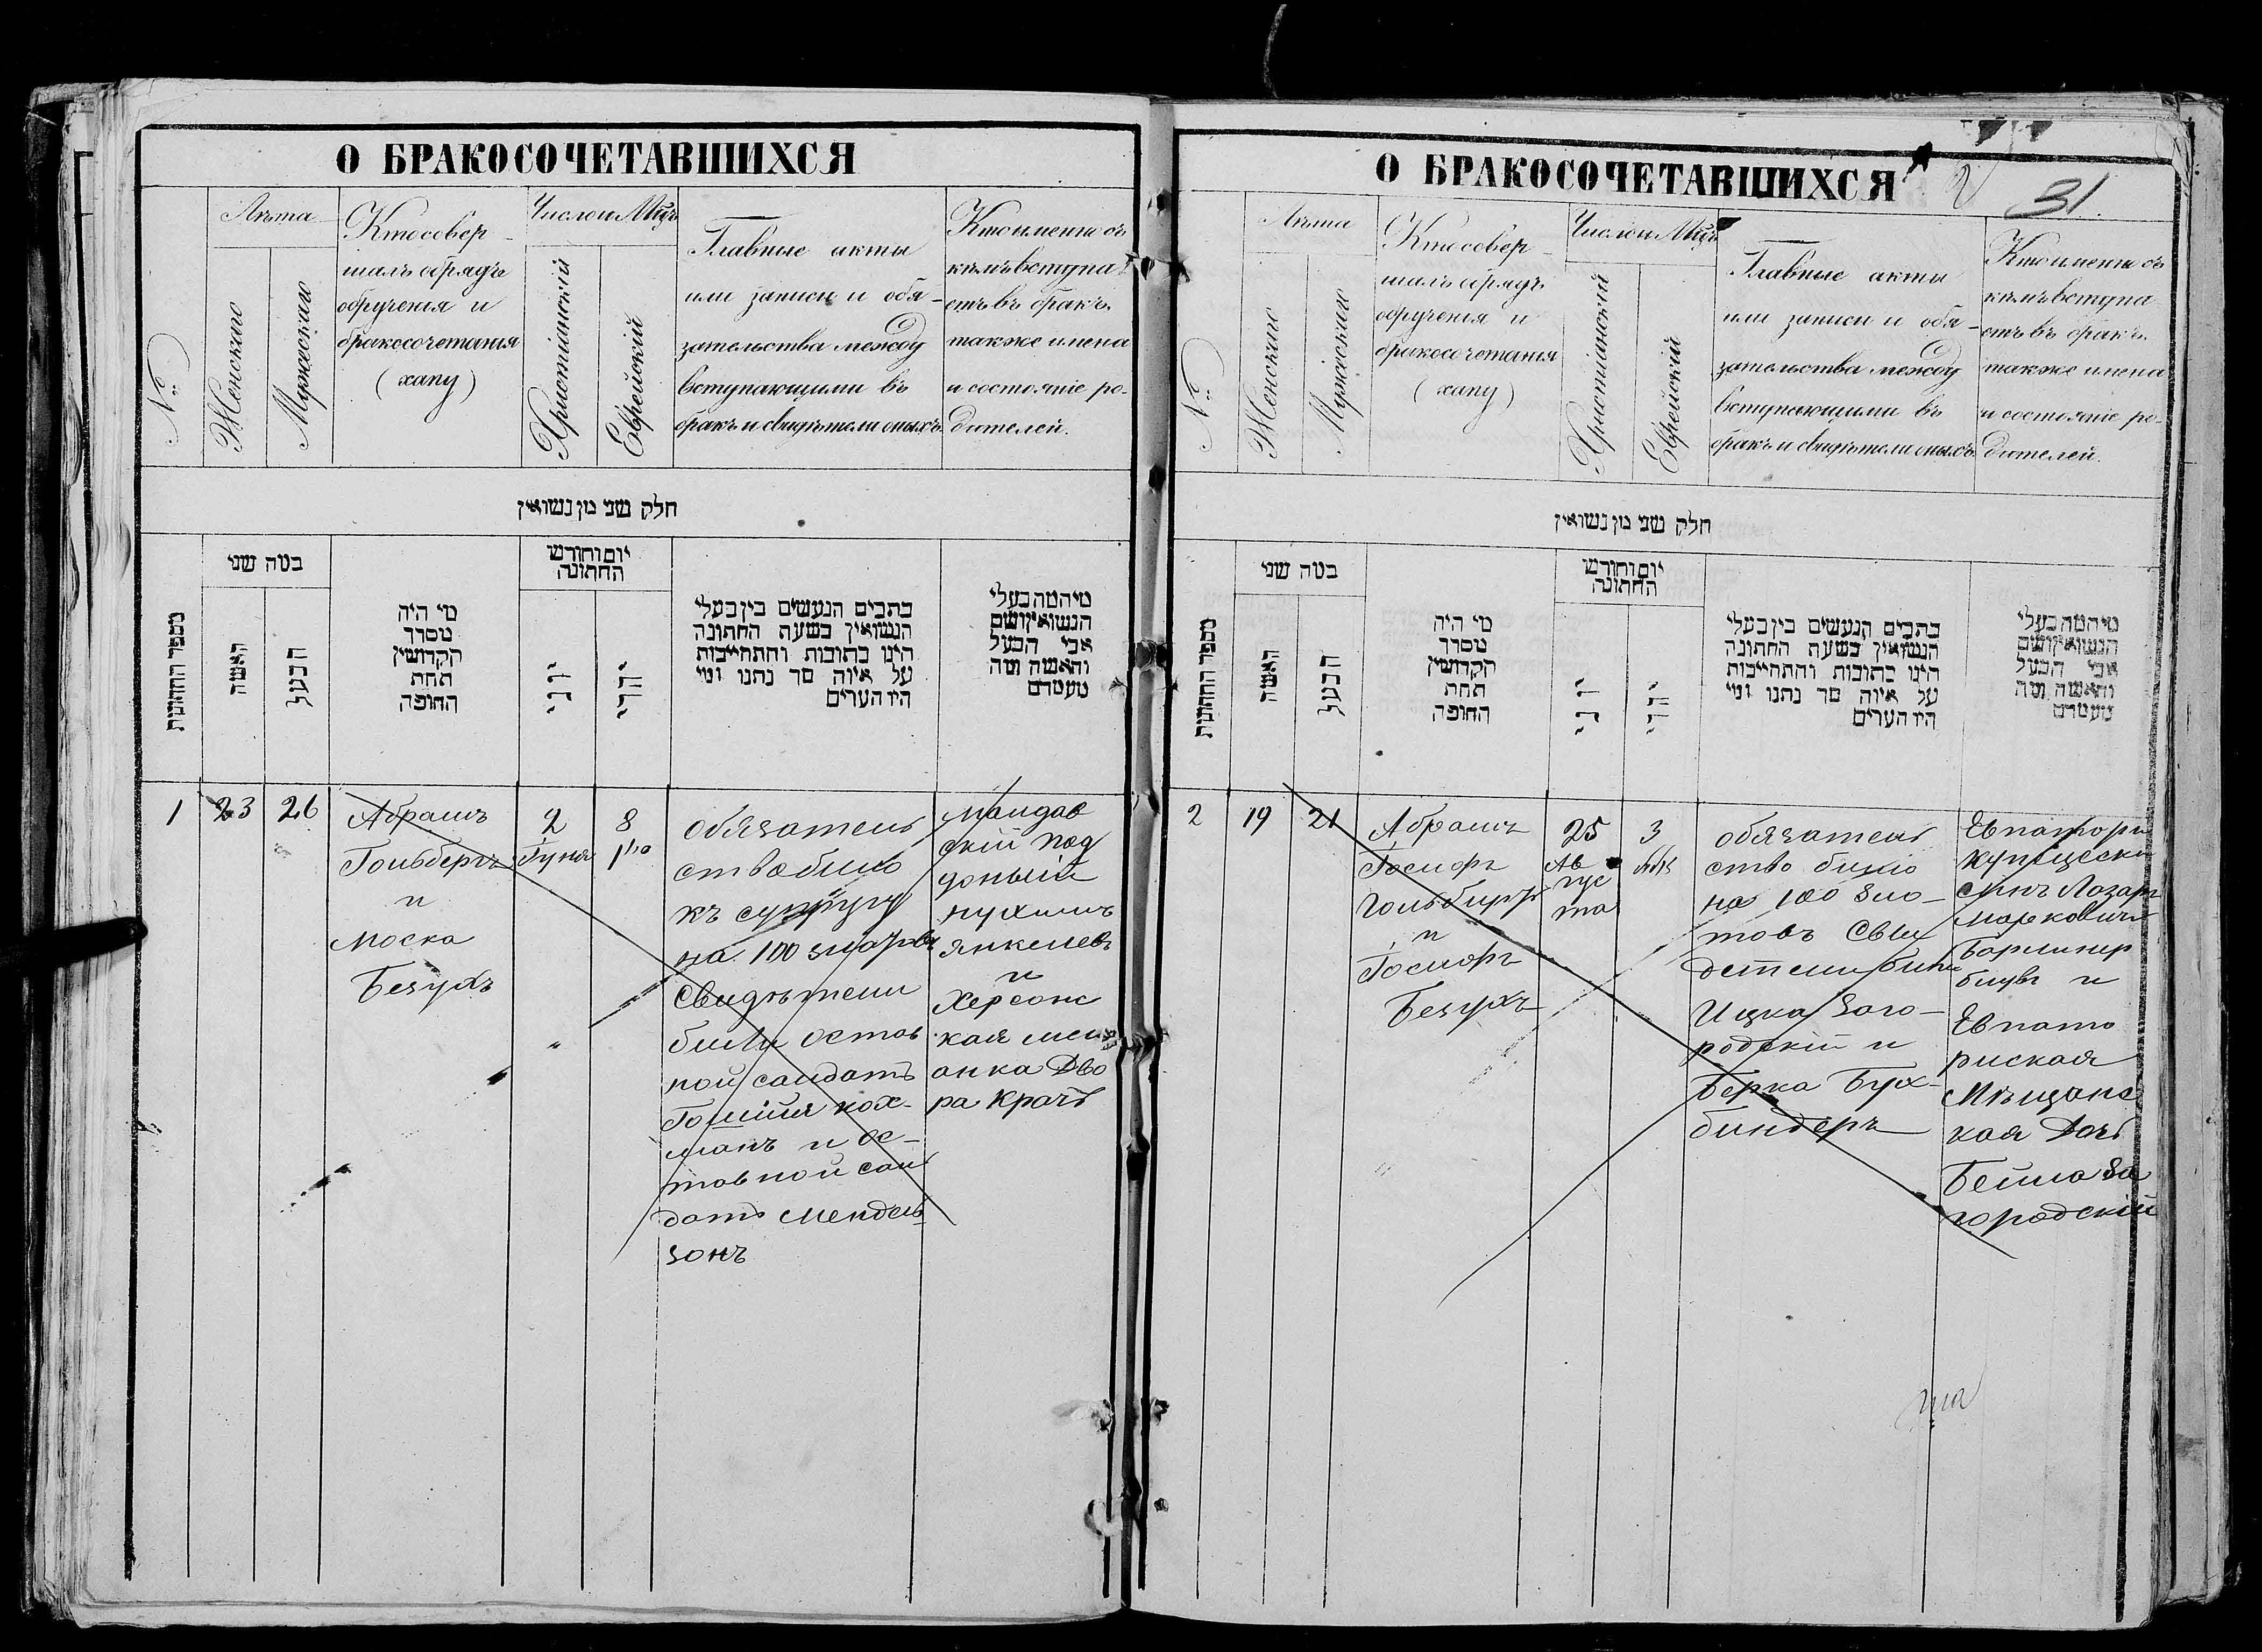 О БРАКОСОЧЕТАВШИХСЯ
№
Лѣта
Женскаго
Мужескаго
Кто совер-
шалъ обрядъ
обрученія и
бракосочетанія
(хапу)
Число и Мцъ
Христіанскій
Еврейскій
Главные акты
или записи и обя-
зательства между
вступающими въ
бракъ и свидѣтели оныхъ
Кто именно съ
кѣмъ вступа
етъ въ бракъ
также имена
и состояніе ро-
дителей.
חלק שני מן נשואין
מספר החתונות
כמה שני
האשה
הבעל
מי היה
מסדר
הקדושין
תחת
החופה
יום וחודש
החתונה
יוני
יהודי
כתבים הנעשים בין בעלי
הנשואין בשעת החתונה
היינו כתובות והתחייבות
על איזה סך נתנו ומי
היו העדים
מי המה בעלי
הנשואין ושם
אבי הבעל
והאשה ומה
מעמדם
1
23
26
Абрамъ
Гольбергъ
и
Моска
Безухъ
2
Гуня
8
סיון
обязатель
ство било
къ супругу
на 100 злотовъ
Свидѣтели
били остав
ной салдатъ
кох-
манъ и ос-
тавной сал
датъ Мендель
зонъ
Малдав
скій под
доный
нухимъ
янкелевъ
и
Херсонс
кая мещ
анка Дво
ра Крачъ
О БРАКОСОЧЕТАВШИХСЯ
31.
№
Лѣта
Женскаго
Мужескаго
Кто совер-
шалъ обрядъ
обрученія и
бракосочетанія
(хапу)
Число и Мцъ
Христіанскій
Еврейскій
Главные акты
или записи и обя-
зательства между
вступающими въ
бракъ и свидѣтели оныхъ
Кто именно съ
кѣмъ вступа
етъ въ бракъ
также имена
и состояніе ро-
дителей.
חלק שני מן נשואין
מספר החתונות
כמה שני
האשה
הבעל
מי היה
מסדר
הקדושין
תחת
החופה
יום וחודש
החתונה
יוני
יהודי
כתבים הנעשים בין בעלי
הנשואין בשעת החתונה
היינו כתובות והתחייבות
על איזה סך נתנו ומי
היו העדים
מי המה בעלי
הנשואין ושם
אבי הבעל
והאשה ומה
מעמדם
2
19
21
Абрамъ
Гольбиргъ
и
Безухъ
25
Ав
гус
та
3
אלול
обязатель
ство било
на 100 Зло-
товъ Сви
детели били
Ицка Заго-
родскій и
Берка Бух-
биндеръ
Евпатори
купецески
Синъ Лазарь
Марковичъ
и
Евпато
риская
Мѣщанс
кая Дочь
Бейла За
городскій